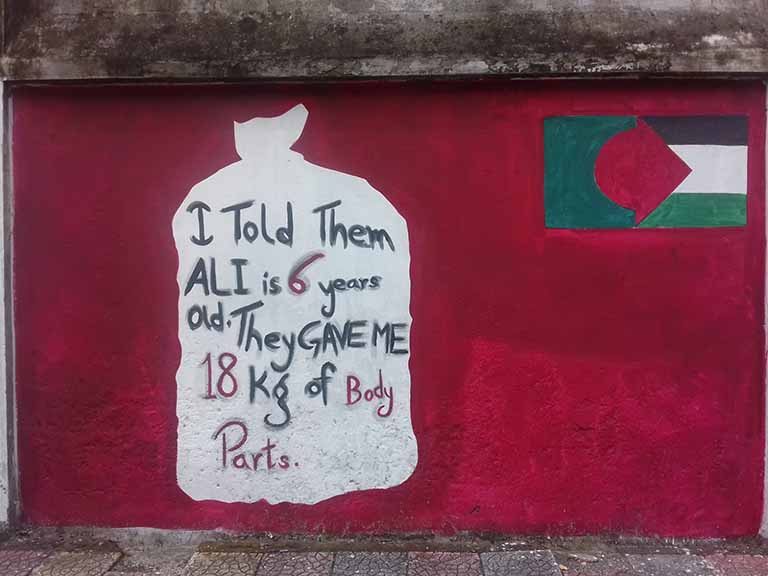 I Told Them
ALI is 6 years
old. They GAVE ME
18 Kg of Body
Parts.